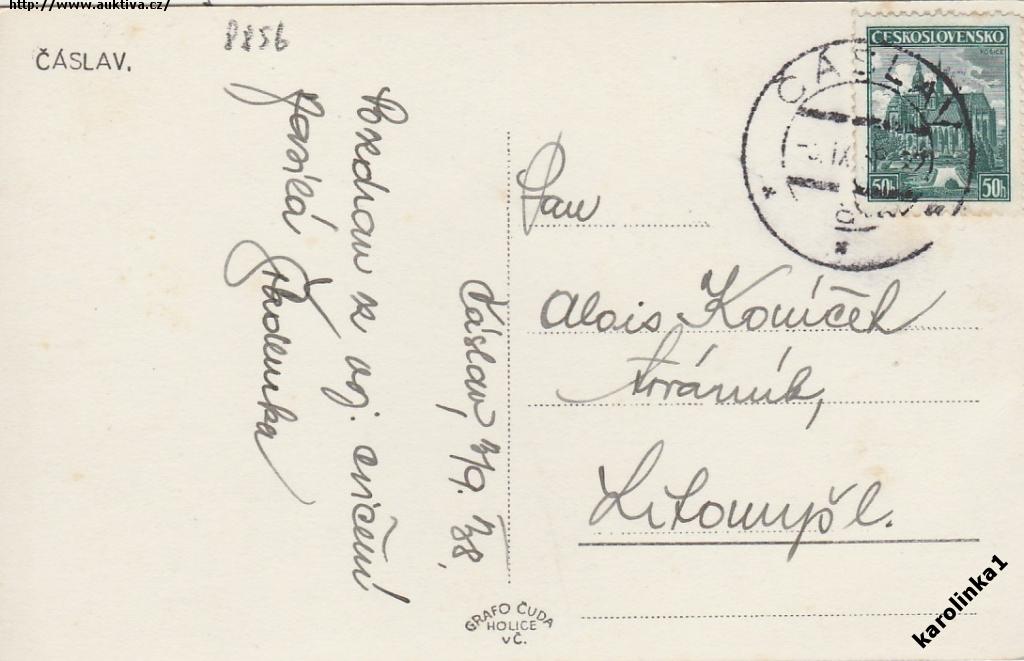 http://www.auktiva.cz/
8856
ČÁSLAV.
Čáslav, 3/9. 38,
Pozdrav ze voj. cvičení
posílá
Zhdenka
Pan
Alois Koníček
továrník,
Litomyšl.
ČESKOSLOVENSKO
KOŠICE
50h 50h
ČÁSLAV
GRAFO ČUDA
HOLICE
v Č.
karolinka1